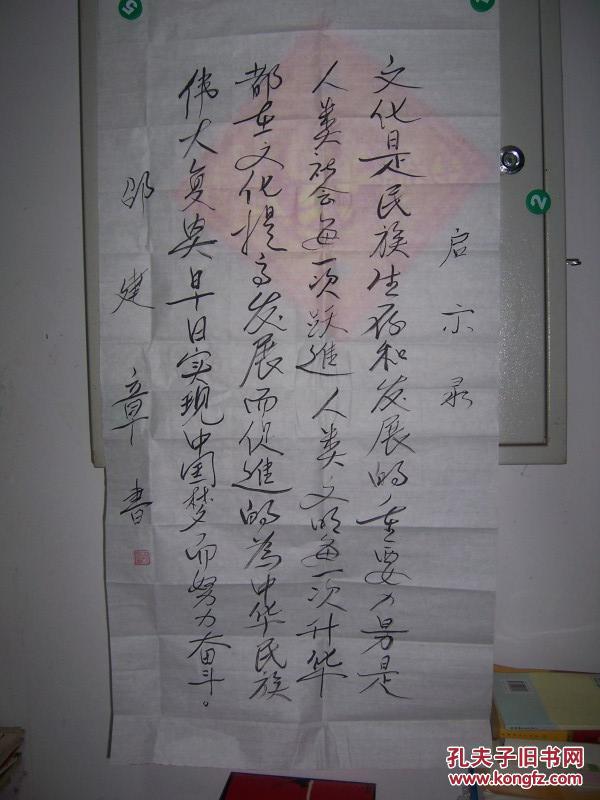 启示录
文化是民族生存和发展的重要力另是
人类社会每一次跃進人类文明每一次升华
都在文化提高发展而促進的為中华民族
伟大复兴早日实现中国梦而努力奋斗。
邵建章書
5
2
孔夫子旧书网
www.kongfz.com